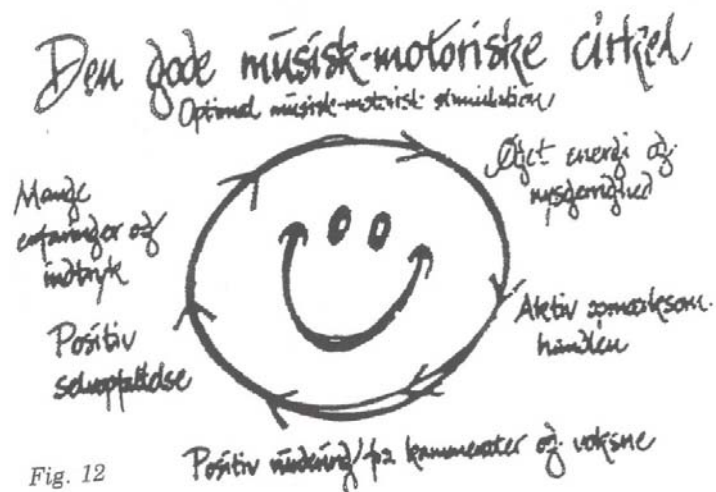 Den gode musisk-motoriske cirkel
Optimal musisk-motorisk stimulation
Øget energi og
nysgerrighed
Aktiv opmærksom
handlen
Positiv vurdering fra kammerater og voksne
Positiv
selvopfattelse
Mange
erfaringer og
indtryk
Fig. 12